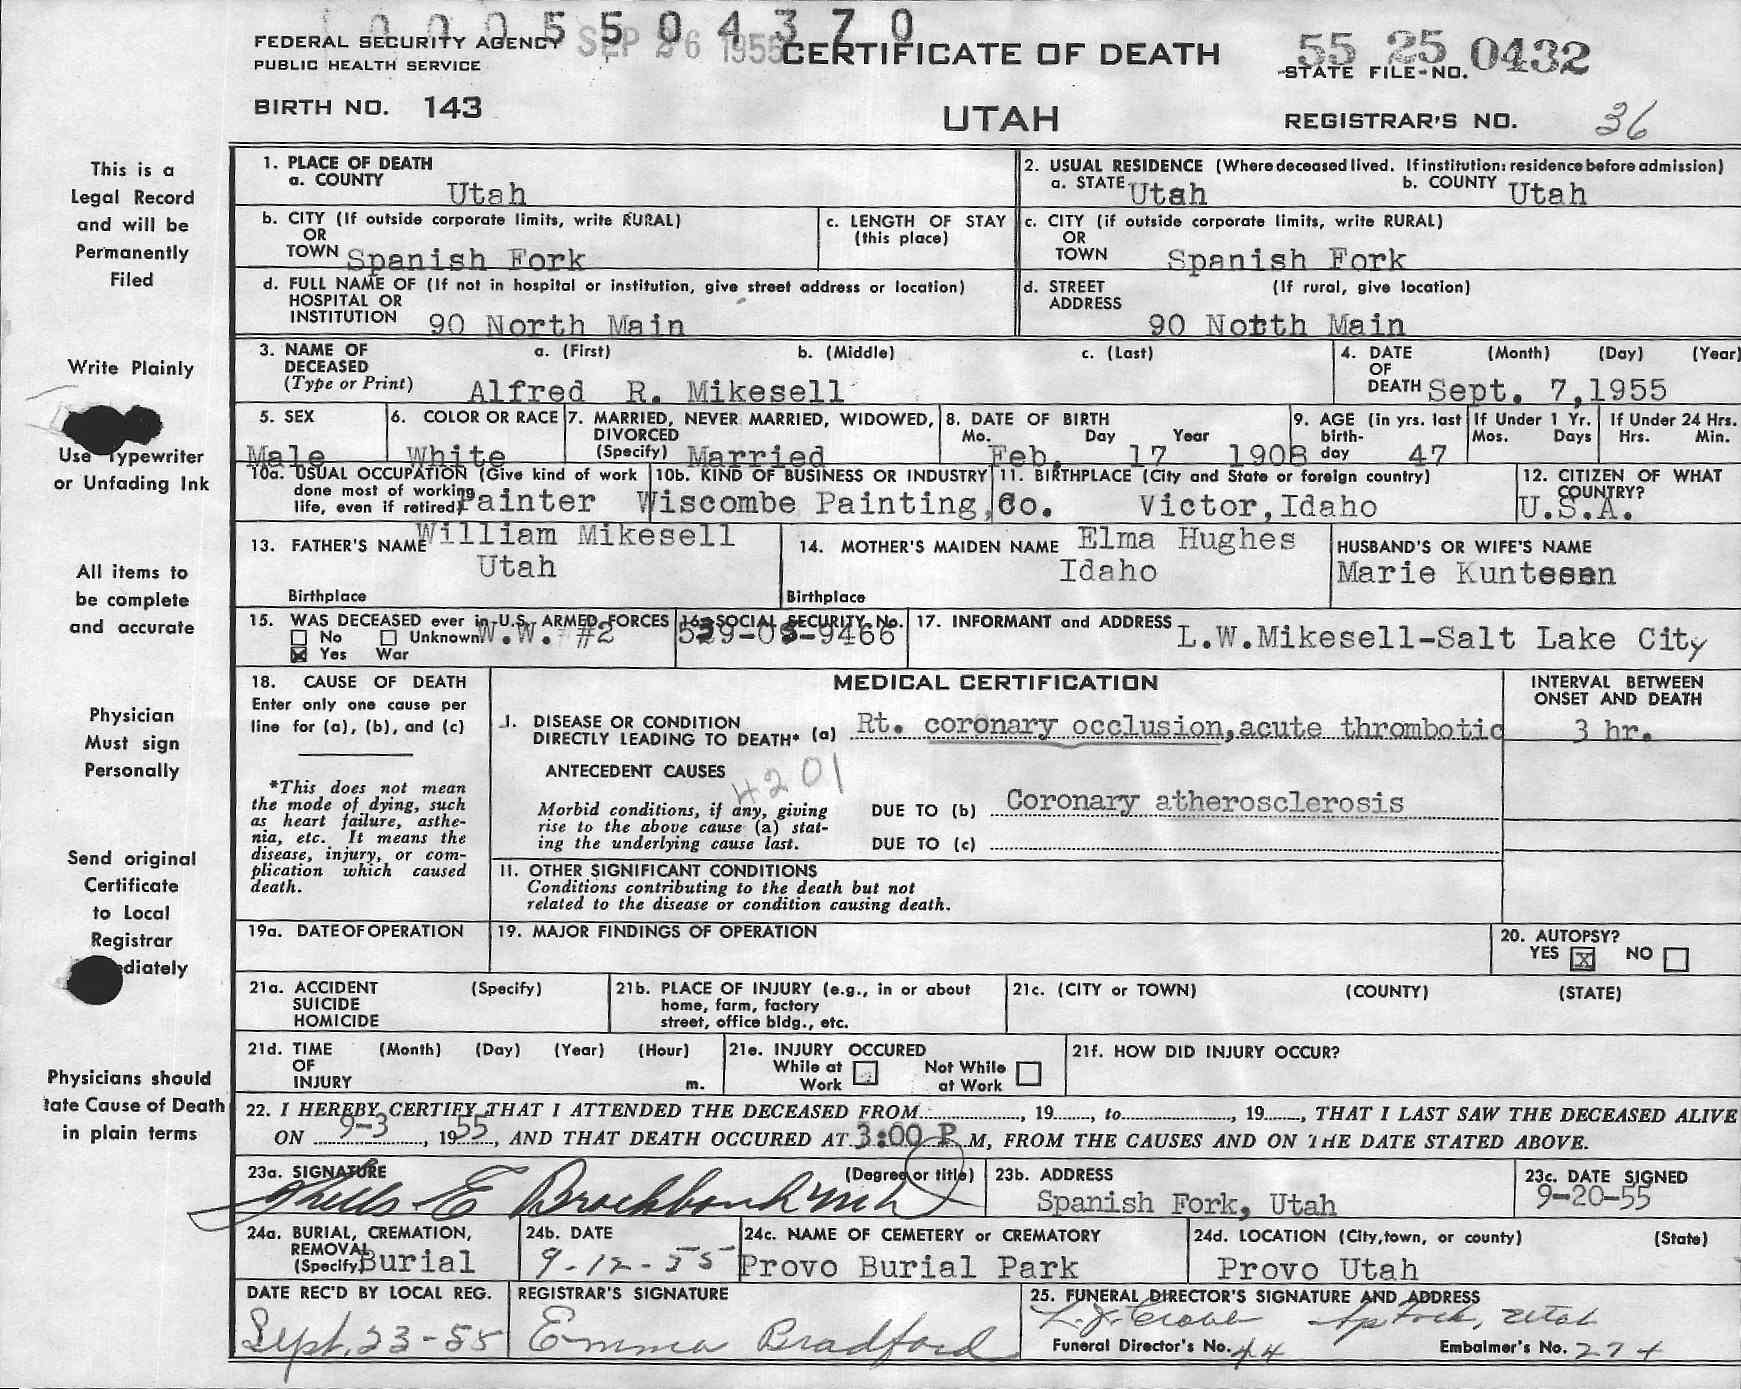 0005504370
FEDERAL SECURITY AGENCY SEP 26 1955 CERTIFICATE OF DEATH 55 25 0432
PUBLIC HEALTH SERVICE STATE FILE-NO.
BIRTH NO. 143 UTAH REGISTRAR'S NO. 36
This is a
Legal Record
and will be
Permanently
Filed
Write Plainly
Use Typewriter
or Unfading Ink
All items to
be complete
and accurate
Physician
Must sign
Personally
Send original
Certificate
to Local
Registrar
diately
Physicians should
tate Cause of Death
in plain terms
1. PLACE OF DEATH
a. COUNTY Utah
2. USUAL RESIDENCE (Where deceased lived. If institution: residence before admission)
a. STATE Utah b. COUNTY Utah
b. CITY (If outside corporate limits, write RURAL)
OR
TOWN Spanish Fork
c. LENGTH OF STAY
(this place)
c. CITY (if outside corporate limits, write RURAL)
OR
TOWN Spanish Fork
d. FULL NAME OF (If not in hospital or institution, give street address or location)
HOSPITAL OR
INSTITUTION 90 North Main
d. STREET (If rural, give location)
ADDRESS
90 Notth Main
3. NAME OF a. (First) b. (Middle) c. (Last)
DECEASED
(Type or Print) Alfred R. Mikesell
4. DATE (Month) (Day) (Year)
OF
DEATH Sept. 7,1955
5. SEX
Male
6. COLOR OR RACE
White
7. MARRIED, NEVER MARRIED, WIDOWED,
DIVORCED
(Specify) Married
8. DATE OF BIRTH
Mo. Day Year
Feb. 17 1908
9. AGE (in yrs. last
birth-
day 47
If Under 1 Yr.
Mos. Days
If Under 24 Hrs.
Hrs. Min.
10a. USUAL OCCUPATION (Give kind of work
done most of working
life, even if retired) Painter
10b. KIND OF BUSINESS OR INDUSTRY
Wiscombe Painting, Co.
11. BIRTHPLACE (City and State or foreign country)
Victor, Idaho
12. CITIZEN OF WHAT
COUNTRY?
U.S.A.
13. FATHER'S NAME William Mikesell
Utah
Birthplace
14. MOTHER'S MAIDEN NAME Elma Hughes
Idaho
Birthplace
HUSBAND'S OR WIFE'S NAME
Marie Kuntesen
15. WAS DECEASED ever in U.S. ARMED FORCES
No Unknown W.W. #2
Yes War
16. SOCIAL SECURITY No.
17. INFORMANT and ADDRESS L.W.Mikesell-Salt Lake City
18. CAUSE OF DEATH
Enter only one cause per
line for (a), (b), and (c)
*This does not mean
the mode of dying, such
as heart failure, asthe-
nia, etc. It means the
disease, injury, or com-
plication which caused
death.
MEDICAL CERTIFICATION
INTERVAL BETWEEN
ONSET AND DEATH
I. DISEASE OR CONDITION
DIRECTLY LEADING TO DEATH* (a) Rt. coronary occlusion,acute thrombotic 3 hr.
ANTECEDENT CAUSES 4201
Morbid conditions, if any, giving
rise to the above cause (a) stat-
ing the underlying cause last.
DUE TO (b) Coronary atherosclerosis
DUE TO (c)
II. OTHER SIGNIFICANT CONDITIONS
Conditions contributing to the death but not
related to the disease or condition causing death.
19a. DATE OF OPERATION
19. MAJOR FINDINGS OF OPERATION
20. AUTOPSY?
YES X NO
21a. ACCIDENT (Specify)
SUICIDE
HOMICIDE
21b. PLACE OF INJURY (e.g., in or about
home, farm, factory
street, office bldg., etc.
21c. (CITY or TOWN) (COUNTY) (STATE)
21d. TIME (Month) (Day) (Year) (Hour)
OF
INJURY m.
21e. INJURY OCCURED
While at Not While
Work at Work
21f. HOW DID INJURY OCCUR?
22. I HEREBY CERTIFY THAT I ATTENDED THE DECEASED FROM , 19 , to , 19 , THAT I LAST SAW THE DECEASED ALIVE
ON 9-3, 1955, AND THAT DEATH OCCURED AT 3:00 P M, FROM THE CAUSES AND ON THE DATE STATED ABOVE.
23a. SIGNATURE (Degree or title)
E Brockbank MD
23b. ADDRESS
Spanish Fork, Utah
23c. DATE SIGNED
9-20-55
24a. BURIAL, CREMATION,
REMOVAL
(Specify) Burial
24b. DATE
9-12-55
24c. NAME OF CEMETERY or CREMATORY
Provo Burial Park
24d. LOCATION (City,town, or county) (State)
Provo Utah
DATE REC'D BY LOCAL REG.
Sept. 23-55
REGISTRAR'S SIGNATURE
Emma Bradford
25. FUNERAL DIRECTOR'S SIGNATURE AND ADDRESS
Sp Fork, Utah
Funeral Director's No. 44 Embalmer's No. 274